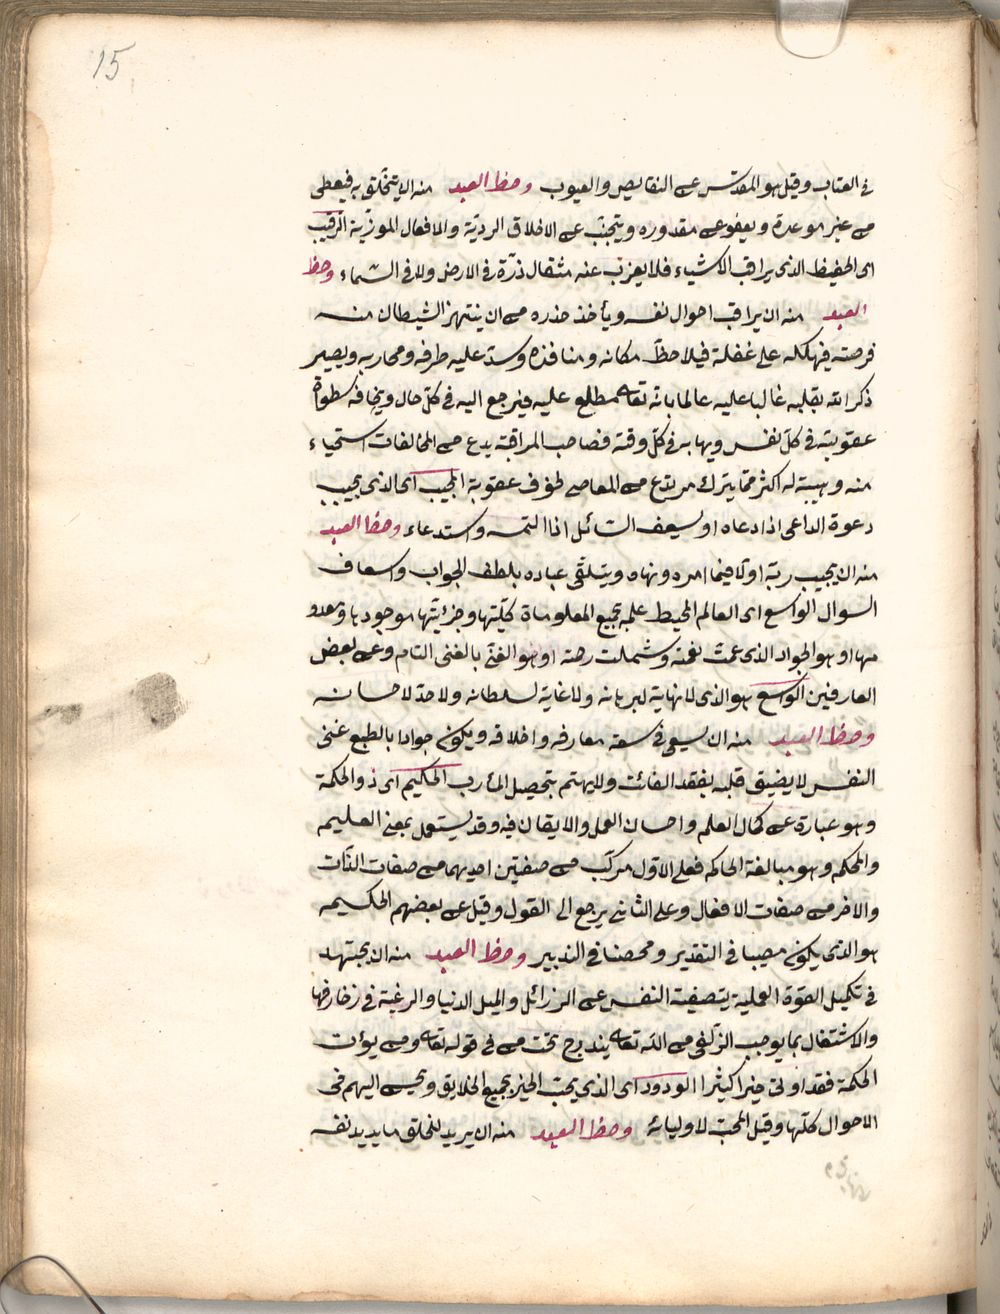 15
في العتاب وقيل هو المقدس عن النقايص والعيوب وحظ العبد منه ان يتخلق به فيعطى
من غير موعدة ويعفو عن مقدوره ويتجنب عن الاخلاق الردية والافعال الموزية الرقيب
اى الحفيظ الذى يراقب الاشياء فلا يعزب عنه مثقال ذرة في الارض ولا في السماء وحظ
العبد منه ان يراقب احوال نفسه ويأخذ حذره من ان ينتهز الشيطان منه
فرصته فيهلكه على غفلة فيلاحظ مكانه ومنافذه وسد عليه طرفه ومحاربه ويصير
ذكر الله بقلبه غالبا عليه عالما بانه تعالى مطلع عليه فيرجع اليه في كل حال ويخافه سطوة
عقوبته في كل نفس ويهابه في كل وقته فصاحب المراقبة يدع من المخالفات استحياء
منه وهيبة له اكثر مما يترك من يدع من المعاصى لخوف عقوبة المجيب اى الذى يجيب
دعوة الداعى اذا دعاه او يسعف السائل اذا التمسه واستدعاء وحظ العبد
منه ان يجيب ربه اولا فيما امره ونهاه ويتلقى عباده بلطف الجواب واسعاف
السوال الواسع اى العالم المحيط علمه بجميع المعلوماة كليتها وجزئيتها موجودها ومعدو
مها او هو الجواد الذى عمت نعمته وشملت رحمته او هو الغنى بالغنى التام وعن بعض
العارفين الواسع هو الذى لا نهاية لبرهانه ولا غاية لسلطانه ولا حد لاحسانه
وحظ العبد منه ان يسعى في سعة معارفه واخلاقه ويكون جوادا بالطبع غنى
النفس لا يضيق قلبه بفقد الفائت ولا يهتم بتحصيل المأرب الحكيم اى ذو الحكمة
وهو عبارة عن كمال العلم واحسان العمل والايقان فيه وقد يستعمل بمعنى العليم
والمحكم وهو مبالغة الحاكم فعلى الاول مركب من صفتين احديهما من صفات الذات
والاخر من صفات الافعال وعلى الثانى يرجع الى القول وقيل عن بعضهم الحكيم
هو الذى يكون مصيبا في التقدير ومحصنا في التدبير وحظ العبد منه ان يجتهد
في تكميل القوة العملية بتصفية النفس عن الرزائل والميل الدنيا والرغبة في زخارفها
والاشتغال بما يوجب الزلفى من الله تعالى يندرج تحت من في قوله تعالى ومن يؤت
الحكمة فقد اوتى خيرا كثيرا الودود اى الذى يحب الخير بجميع الخلايق ويحسن اليهم فى
الاحوال كلها وقيل المحب لاوليائه وحظ العبد منه ان يريد للخلق ما يريد نفسه